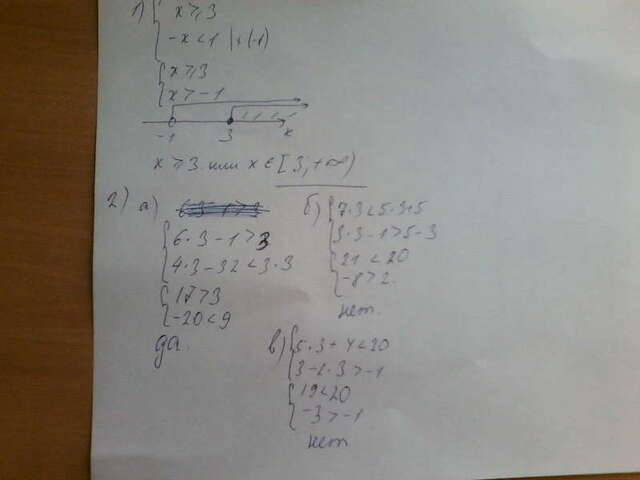 1) { x ⩾ 3
-x < 1 | ×(-1)
{ x ⩾ 3
x > -1
-1 3 x
x ⩾ 3 или x ∈ [3; +∞)
2) а)
{ 6·3-1>3
4·3-32<3·3
{ 17>3
-20<9
да.
б) { 7·3<5·3+5
3·3-1>5-3
{ 21<20
-8>2.
нет.
в) { 5·3+4<20
3-2·3>-1
{ 19<20
-3>-1
нет